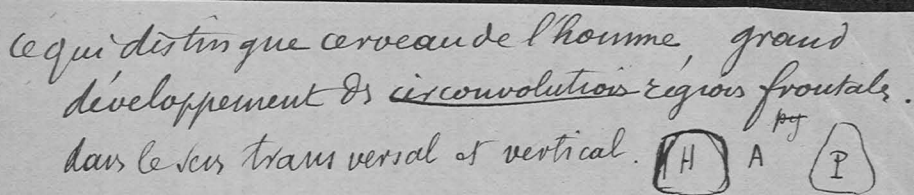 ce qui distingue cerveau de l'homme, grand
développement ds circonvolutions régions frontales.
dans le sens transversal et vertical. H A P